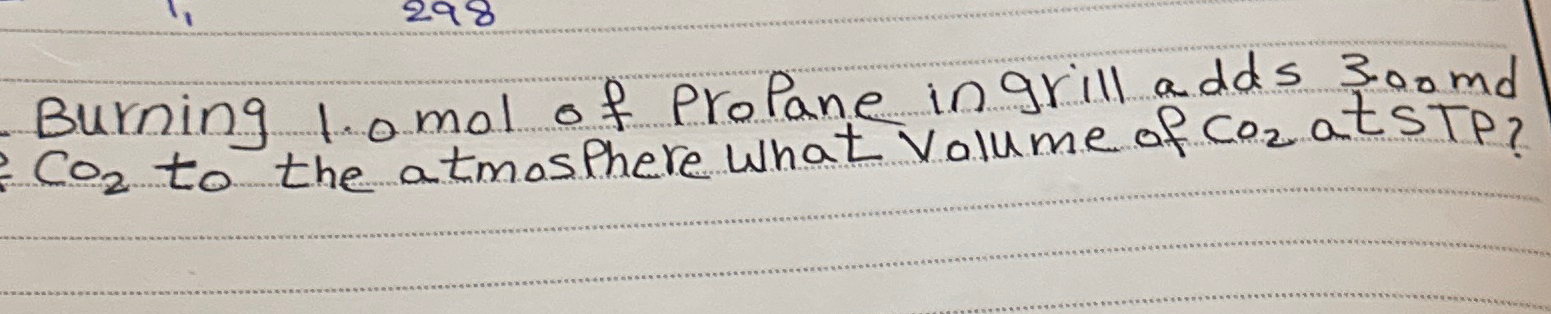 298
Burning 1.0 mol of Propane in grill adds 3.00 mol
CO2 to the atmosphere What Volume of CO2 at STP?